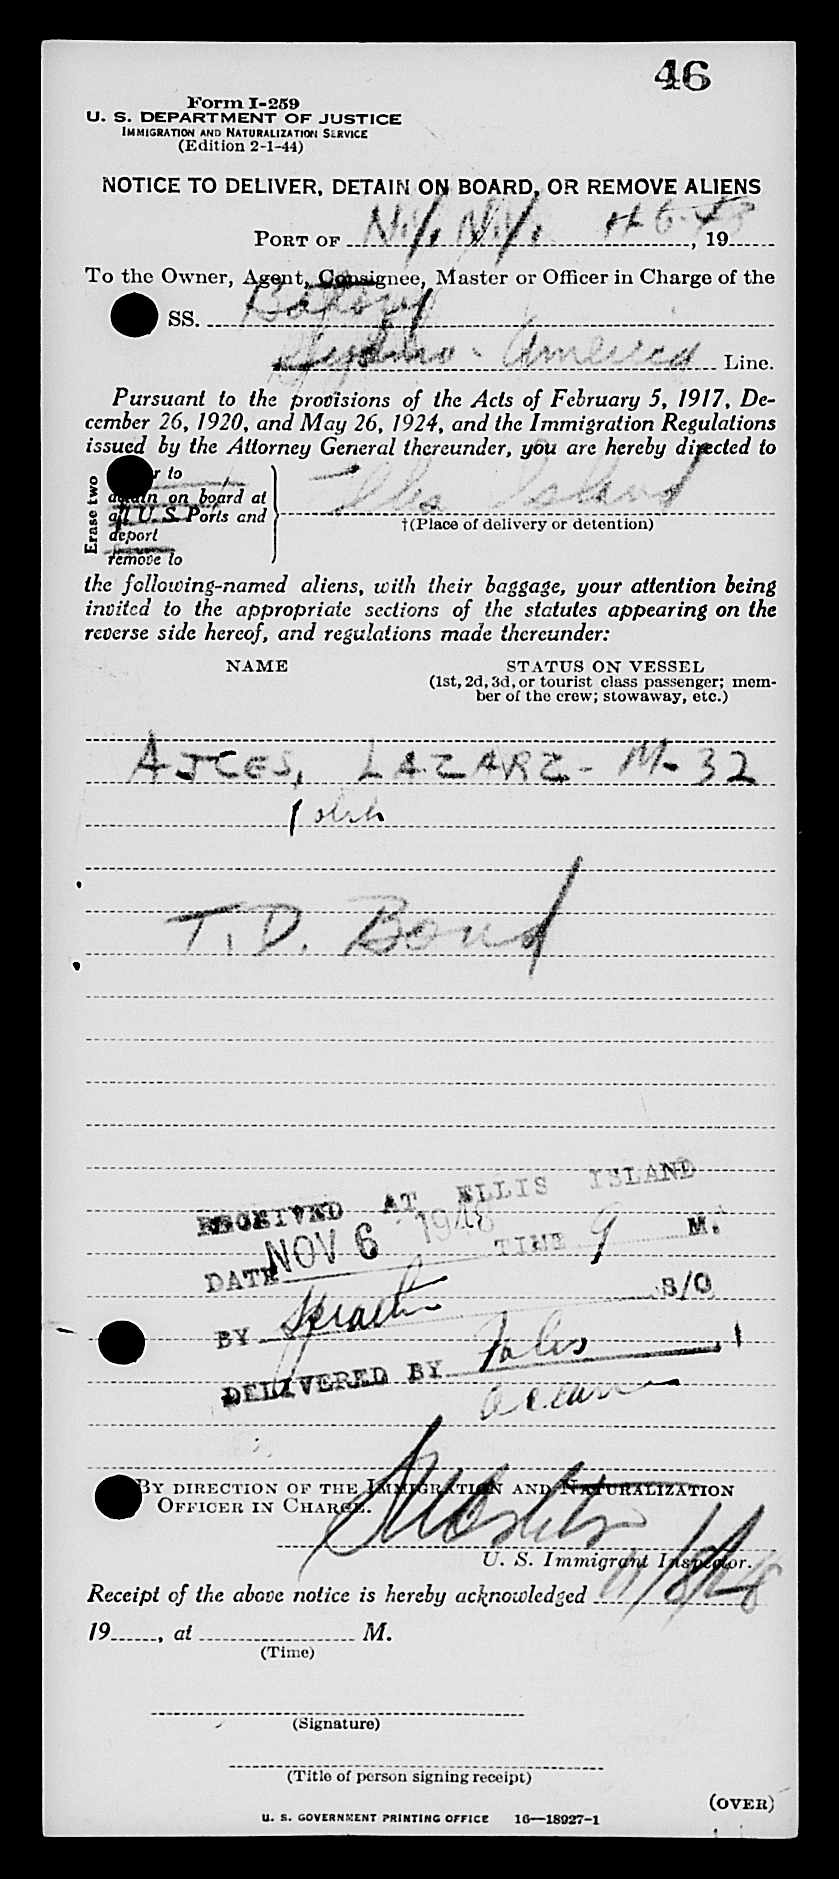 46
Form I-259
U. S. DEPARTMENT OF JUSTICE
IMMIGRATION AND NATURALIZATION SERVICE
(Edition 2-1-44)
NOTICE TO DELIVER, DETAIN ON BOARD, OR REMOVE ALIENS
PORT OF N.Y. N.Y. 11-6-48, 19
To the Owner, Agent, Consignee, Master or Officer in Charge of the
SS. Batory
Gdynia-America Line.
Pursuant to the provisions of the Acts of February 5, 1917, De-
cember 26, 1920, and May 26, 1924, and the Immigration Regulations
issued by the Attorney General thereunder, you are hereby directed to
Erase two
to
detain on board at
all U. S. Ports and
deport
remove to
Ellis Island
†(Place of delivery or detention)
the following-named aliens, with their baggage, your attention being
invited to the appropriate sections of the statutes appearing on the
reverse side hereof, and regulations made thereunder:
NAME STATUS ON VESSEL
(1st, 2d, 3d, or tourist class passenger; mem-
ber of the crew; stowaway, etc.)
AJCES, LAZARZ - M-32
Polish
T.D. Bond
RECEIVED AT ELLIS ISLAND
DATE NOV 6 1948 TIME 9 M.
BY S/O
DELIVERED BY
BY DIRECTION OF THE IMMIGRATION AND NATURALIZATION
OFFICER IN CHARGE.
U. S. Immigrant Inspector.
Receipt of the above notice is hereby acknowledged
19, at M.
(Time)
(Signature)
(Title of person signing receipt)
(OVER)
U. S. GOVERNMENT PRINTING OFFICE 16—18927-1